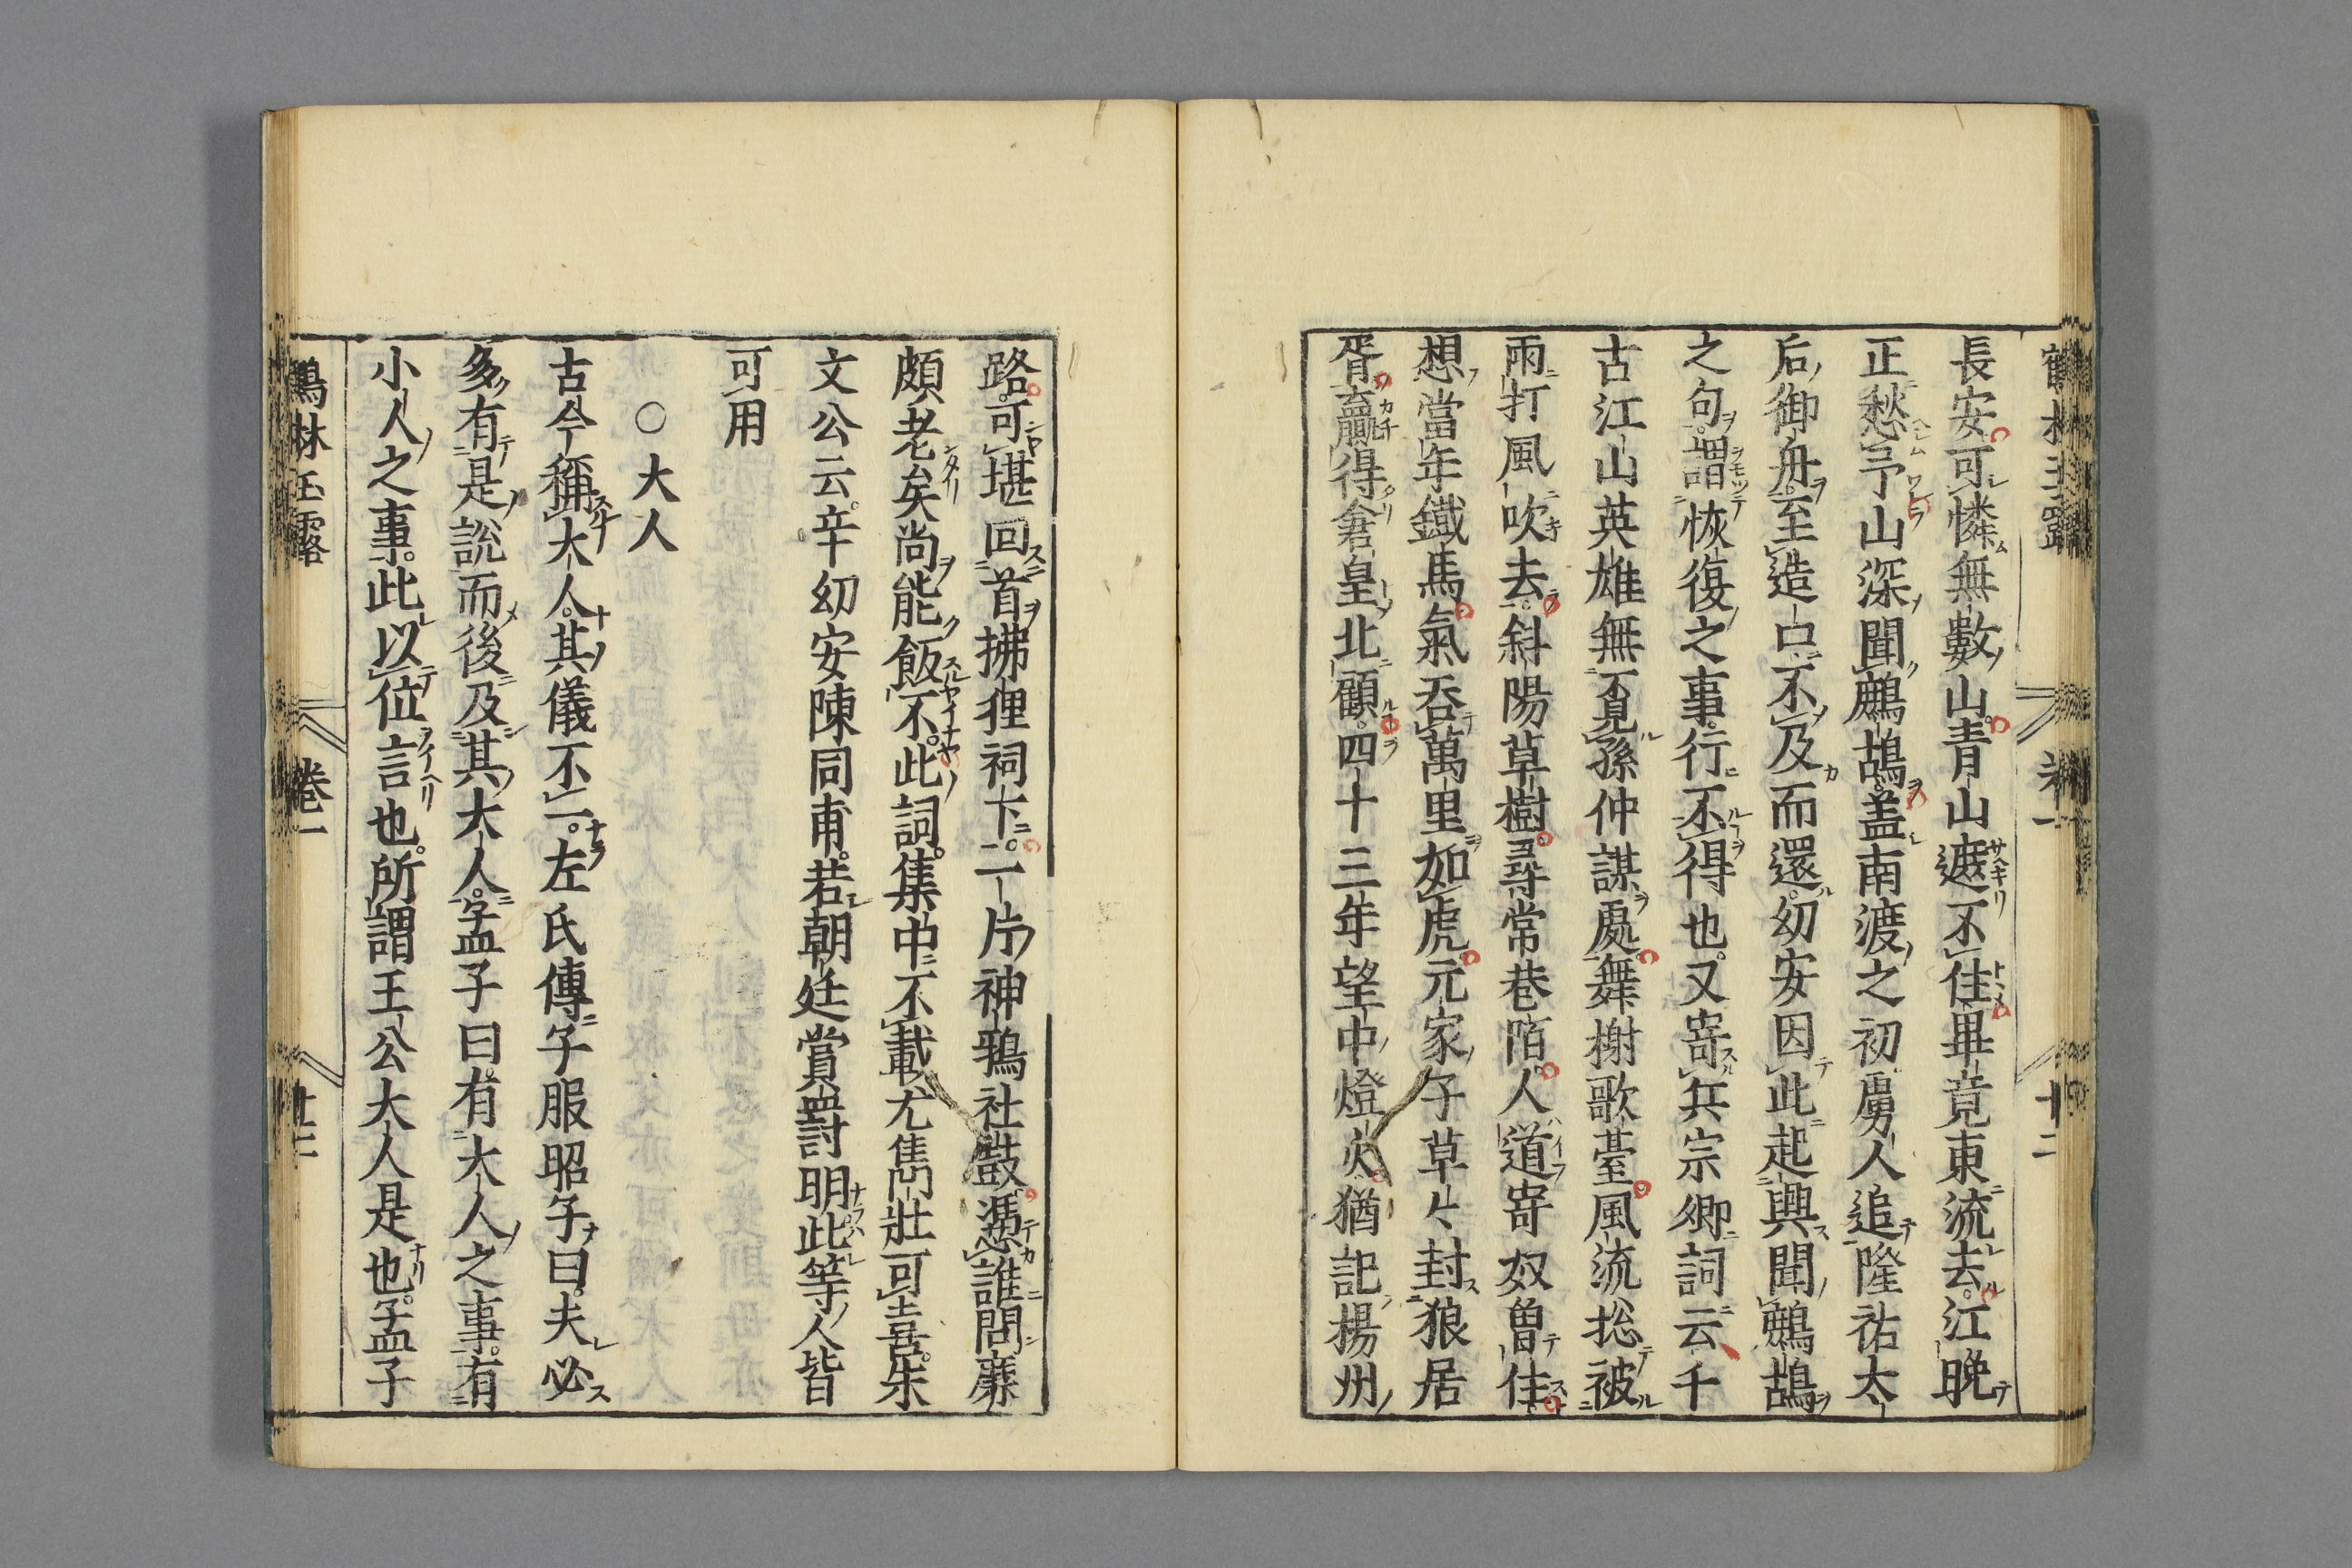 鶴林玉露 卷一 十二
長安可憐無數山青山遮不住畢竟東流去江晚
正愁予山深聞鷓鴣盖南渡之初虜人追隆祐太
后御舟至造口不及而還幼安因此起興聞鷓鴣
之句謂恢復之事行不得也又寄兵宗卿詞云千
古江山英雄無覓孫仲謀處舞榭歌臺風流捴被
雨打風吹去斜陽草樹尋常巷陌人道寄奴曽住
想當年鐵馬氣吞萬里如虎元家子草〻封狼居
胥贏得倉皇北顧四十三年望中燈火猶記揚州
路可堪回首拂狸祠下一片神鴉社鼓憑誰問廉
頗老矣尚能飯不此詞集中不載尤雋壯可喜朱
文公云辛幼安陳同甫若朝廷賞罰明此等人皆
可用
○大人
古今稱大人其儀不一左氏傳子服昭子曰夫必
多有是說而後及其大人孟子曰有大人之事有
小人之事此以位言也所謂王公大人是也孟子
鶴林玉露 卷一